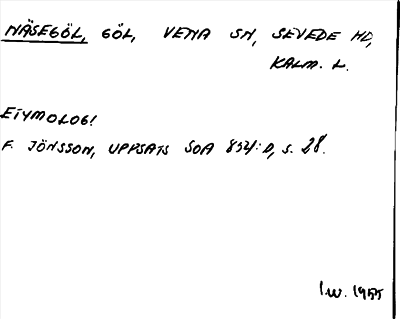 NÄSEGÖL, GÖL, VENA SN, SEVEDE HD,
KALM. L.
ETYMOLOGI
F. JÖNSSON, UPPSATS SOA 852:D, S. 28.
IW. 1955